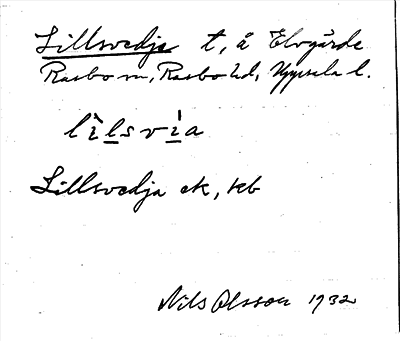 Lillsvedja t, å Elvgärde
Rasbo sn, Rasbo hd, Uppsala l.
lìlsvìa
Lillsvedja ek, kb
Nils Olsson 1932